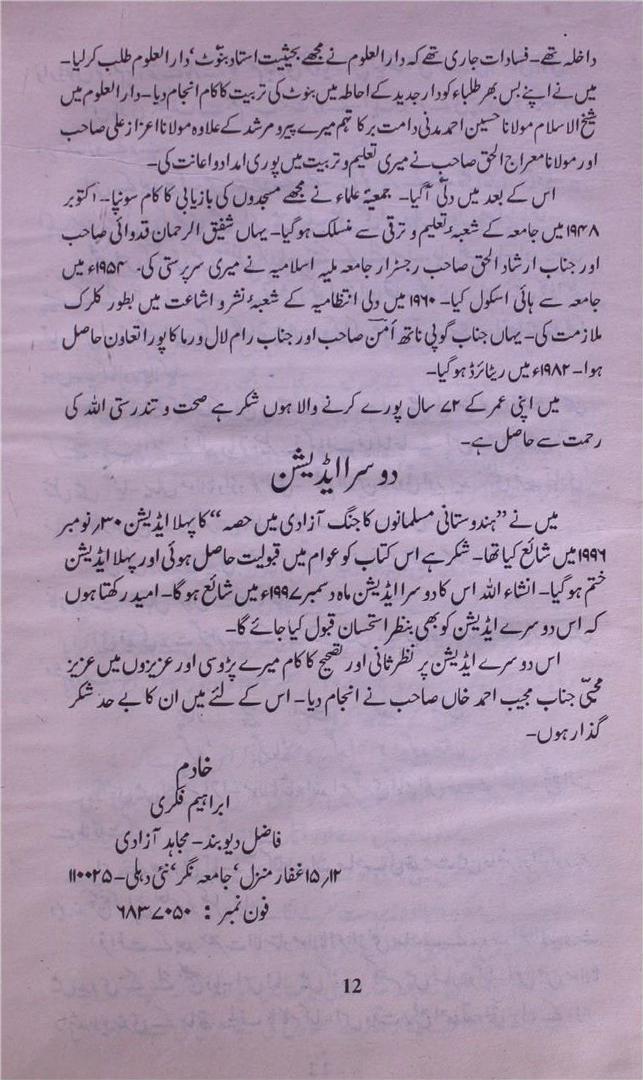 داخلہ تھے۔ فسادات جاری تھے کہ دارالعلوم نے مجھے بحیثیت استاد بنوٹ، دارالعلوم طلب کرلیا۔
میں نے اپنے بس بھر طلباء کو دار جدید کے احاطہ میں بنوٹ کی تربیت کا کام انجام دیا۔ دارالعلوم میں
شیخ الاسلام مولانا حسین احمد مدنی دامت برکاتہم میرے پیر و مرشد کے علاوہ مولانا اعزاز علی صاحب
اور مولانا معراج الحق صاحب نے میری تعلیم و تربیت میں پوری امداد و اعانت کی۔
اس کے بعد میں دلی آگیا۔ جمعیۃ علماء نے مجھے مسجدوں کی بازیابی کا کام سونپا۔ اکتوبر
۱۹۴۸ میں جامعہ کے شعبۂ تعلیم و ترقی سے منسلک ہوگیا۔ یہاں شفیق الرحمان قدوائی صاحب
اور جناب ارشاد الحق صاحب رجسٹرار جامعہ ملیہ اسلامیہ نے میری سرپرستی کی۔ ۱۹۵۴ء میں
جامعہ سے ہائی اسکول کیا۔ ۱۹۶۰ میں دلی انتظامیہ کے شعبۂ نشر و اشاعت میں بطور کلرک
ملازمت کی۔ یہاں جناب گوپی ناتھ امنؔ صاحب اور جناب رام لال ورما کا پورا تعاون حاصل
ہوا۔ ۱۹۸۲ء میں ریٹائرڈ ہوگیا۔
میں اپنی عمر کے ۷۲ سال پورے کرنے والا ہوں شکر ہے صحت و تندرستی اللہ کی
رحمت سے حاصل ہے۔
دوسرا ایڈیشن
میں نے ”ہندوستانی مسلمانوں کا جنگ آزادی میں حصہ“ کا پہلا ایڈیشن ۳۰؍ نومبر
۱۹۹۶ میں شائع کیا تھا۔ شکر ہے اس کتاب کو عوام میں قبولیت حاصل ہوئی اور پہلا ایڈیشن
ختم ہوگیا۔ انشاء اللہ اس کا دوسرا ایڈیشن ماہ دسمبر ۱۹۹۷ء میں شائع ہوگا۔ امید رکھتا ہوں
کہ اس دوسرے ایڈیشن کو بھی بنظر استحسان قبول کیا جائے گا۔
اس دوسرے ایڈیشن پر نظر ثانی اور تصحیح کا کام میرے پڑوسی اور عزیزوں میں عزیز
محبّی جناب مجیب احمد خاں صاحب نے انجام دیا۔ اس کے لئے میں ان کا بے حد شکر
گذار ہوں۔
خادم
ابراہیم فکری
فاضل دیوبند۔ مجاہد آزادی
۱۲؍۱۵ غفار منزل، جامعہ نگر، نئی دہلی۔ ۱۱۰۰۲۵
فون نمبر : ۶۸۳۷۰۵۰
12